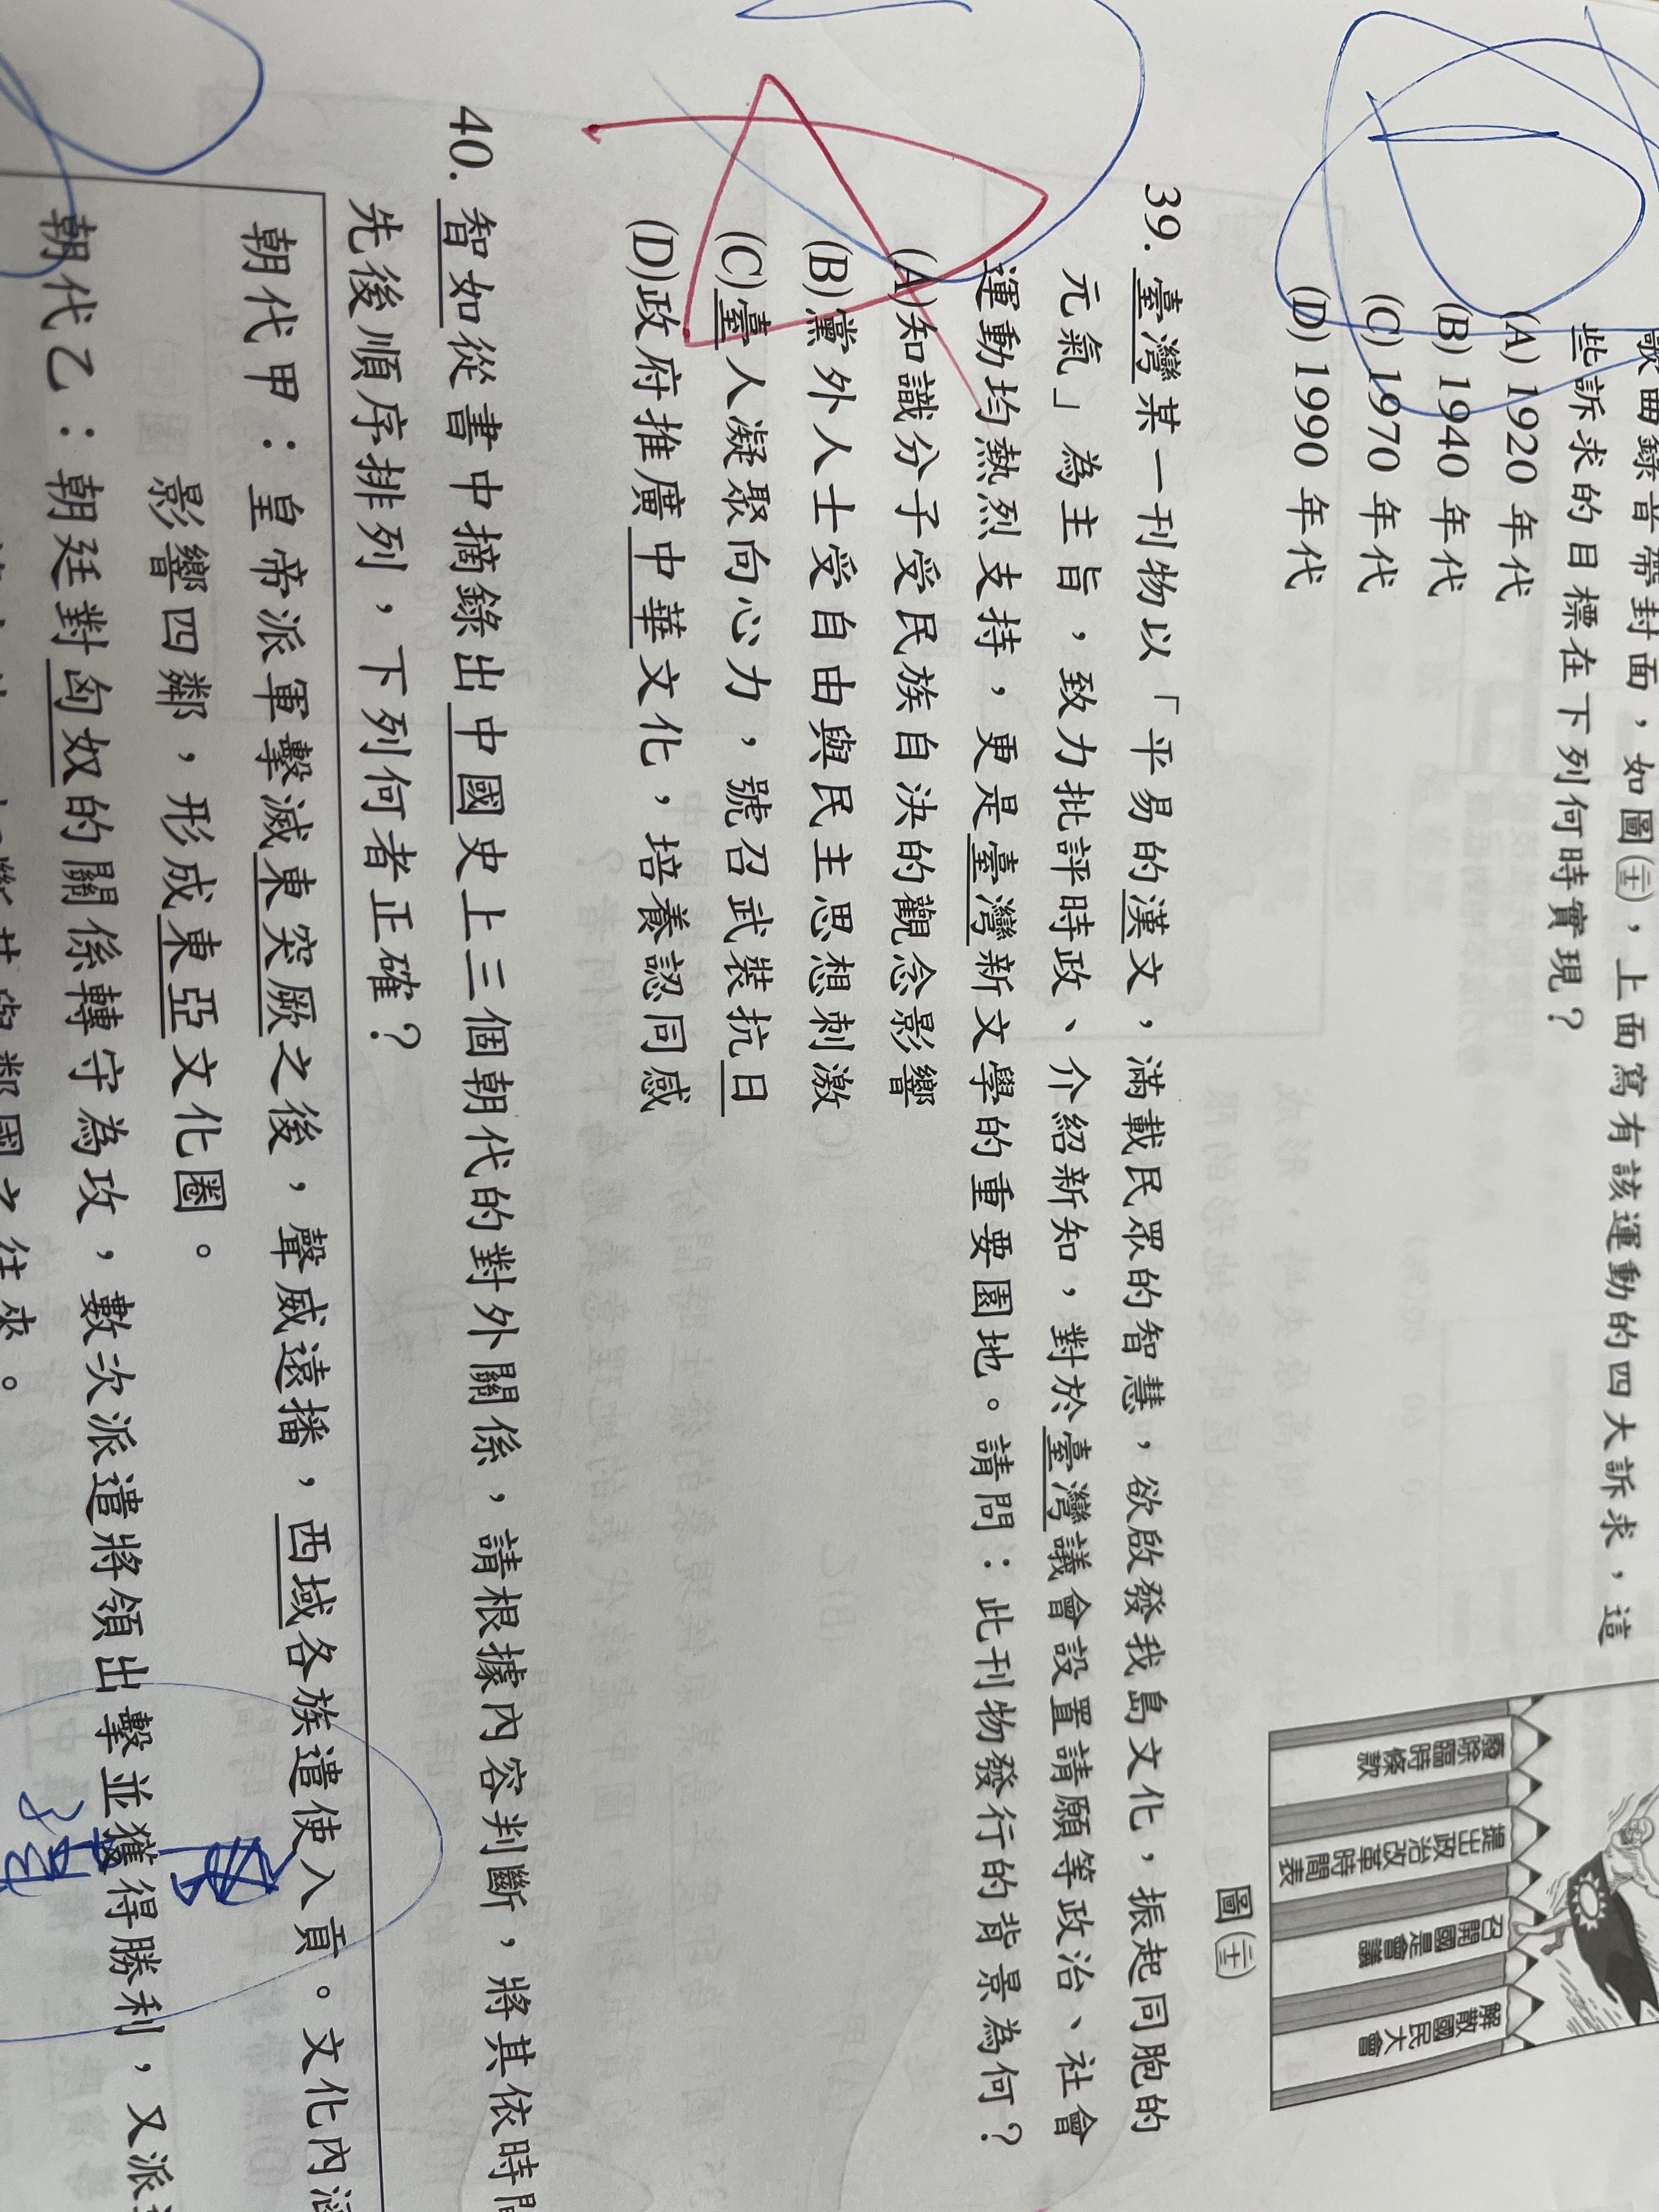 歌曲錄音帶封面，如圖(㊁)，上面寫有該運動的四大訴求，這
些訴求的目標在下列何時實現？
(A) 1920 年代
(B) 1940 年代
(C) 1970 年代
(D) 1990 年代
廢除臨時條款
提出政治改革時間表
召開國是會議
解散國民大會
39. 臺灣某一刊物以「平易的漢文，滿載民眾的智慧，欲啟發我島文化，振起同胞的
元氣」為主旨，致力批評時政、介紹新知，對於臺灣議會設置請願等政治、社會
運動均熱烈支持，更是臺灣新文學的重要園地。請問：此刊物發行的背景為何？
(A)知識分子受民族自決的觀念影響
(B)黨外人士受自由與民主思想刺激
(C)臺人凝聚向心力，號召武裝抗日
(D)政府推廣中華文化，培養認同感
40. 智如從書中摘錄出中國史上三個朝代的對外關係，請根據內容判斷，將其依時間
先後順序排列，下列何者正確？
朝代甲：皇帝派軍擊滅東突厥之後，聲威遠播，西域各族遣使入貢。文化內涵
影響四鄰，形成東亞文化圈。
朝代乙：朝廷對匈奴的關係轉守為攻，數次派遣將領出擊並獲得勝利，又派
鄰國之往來。